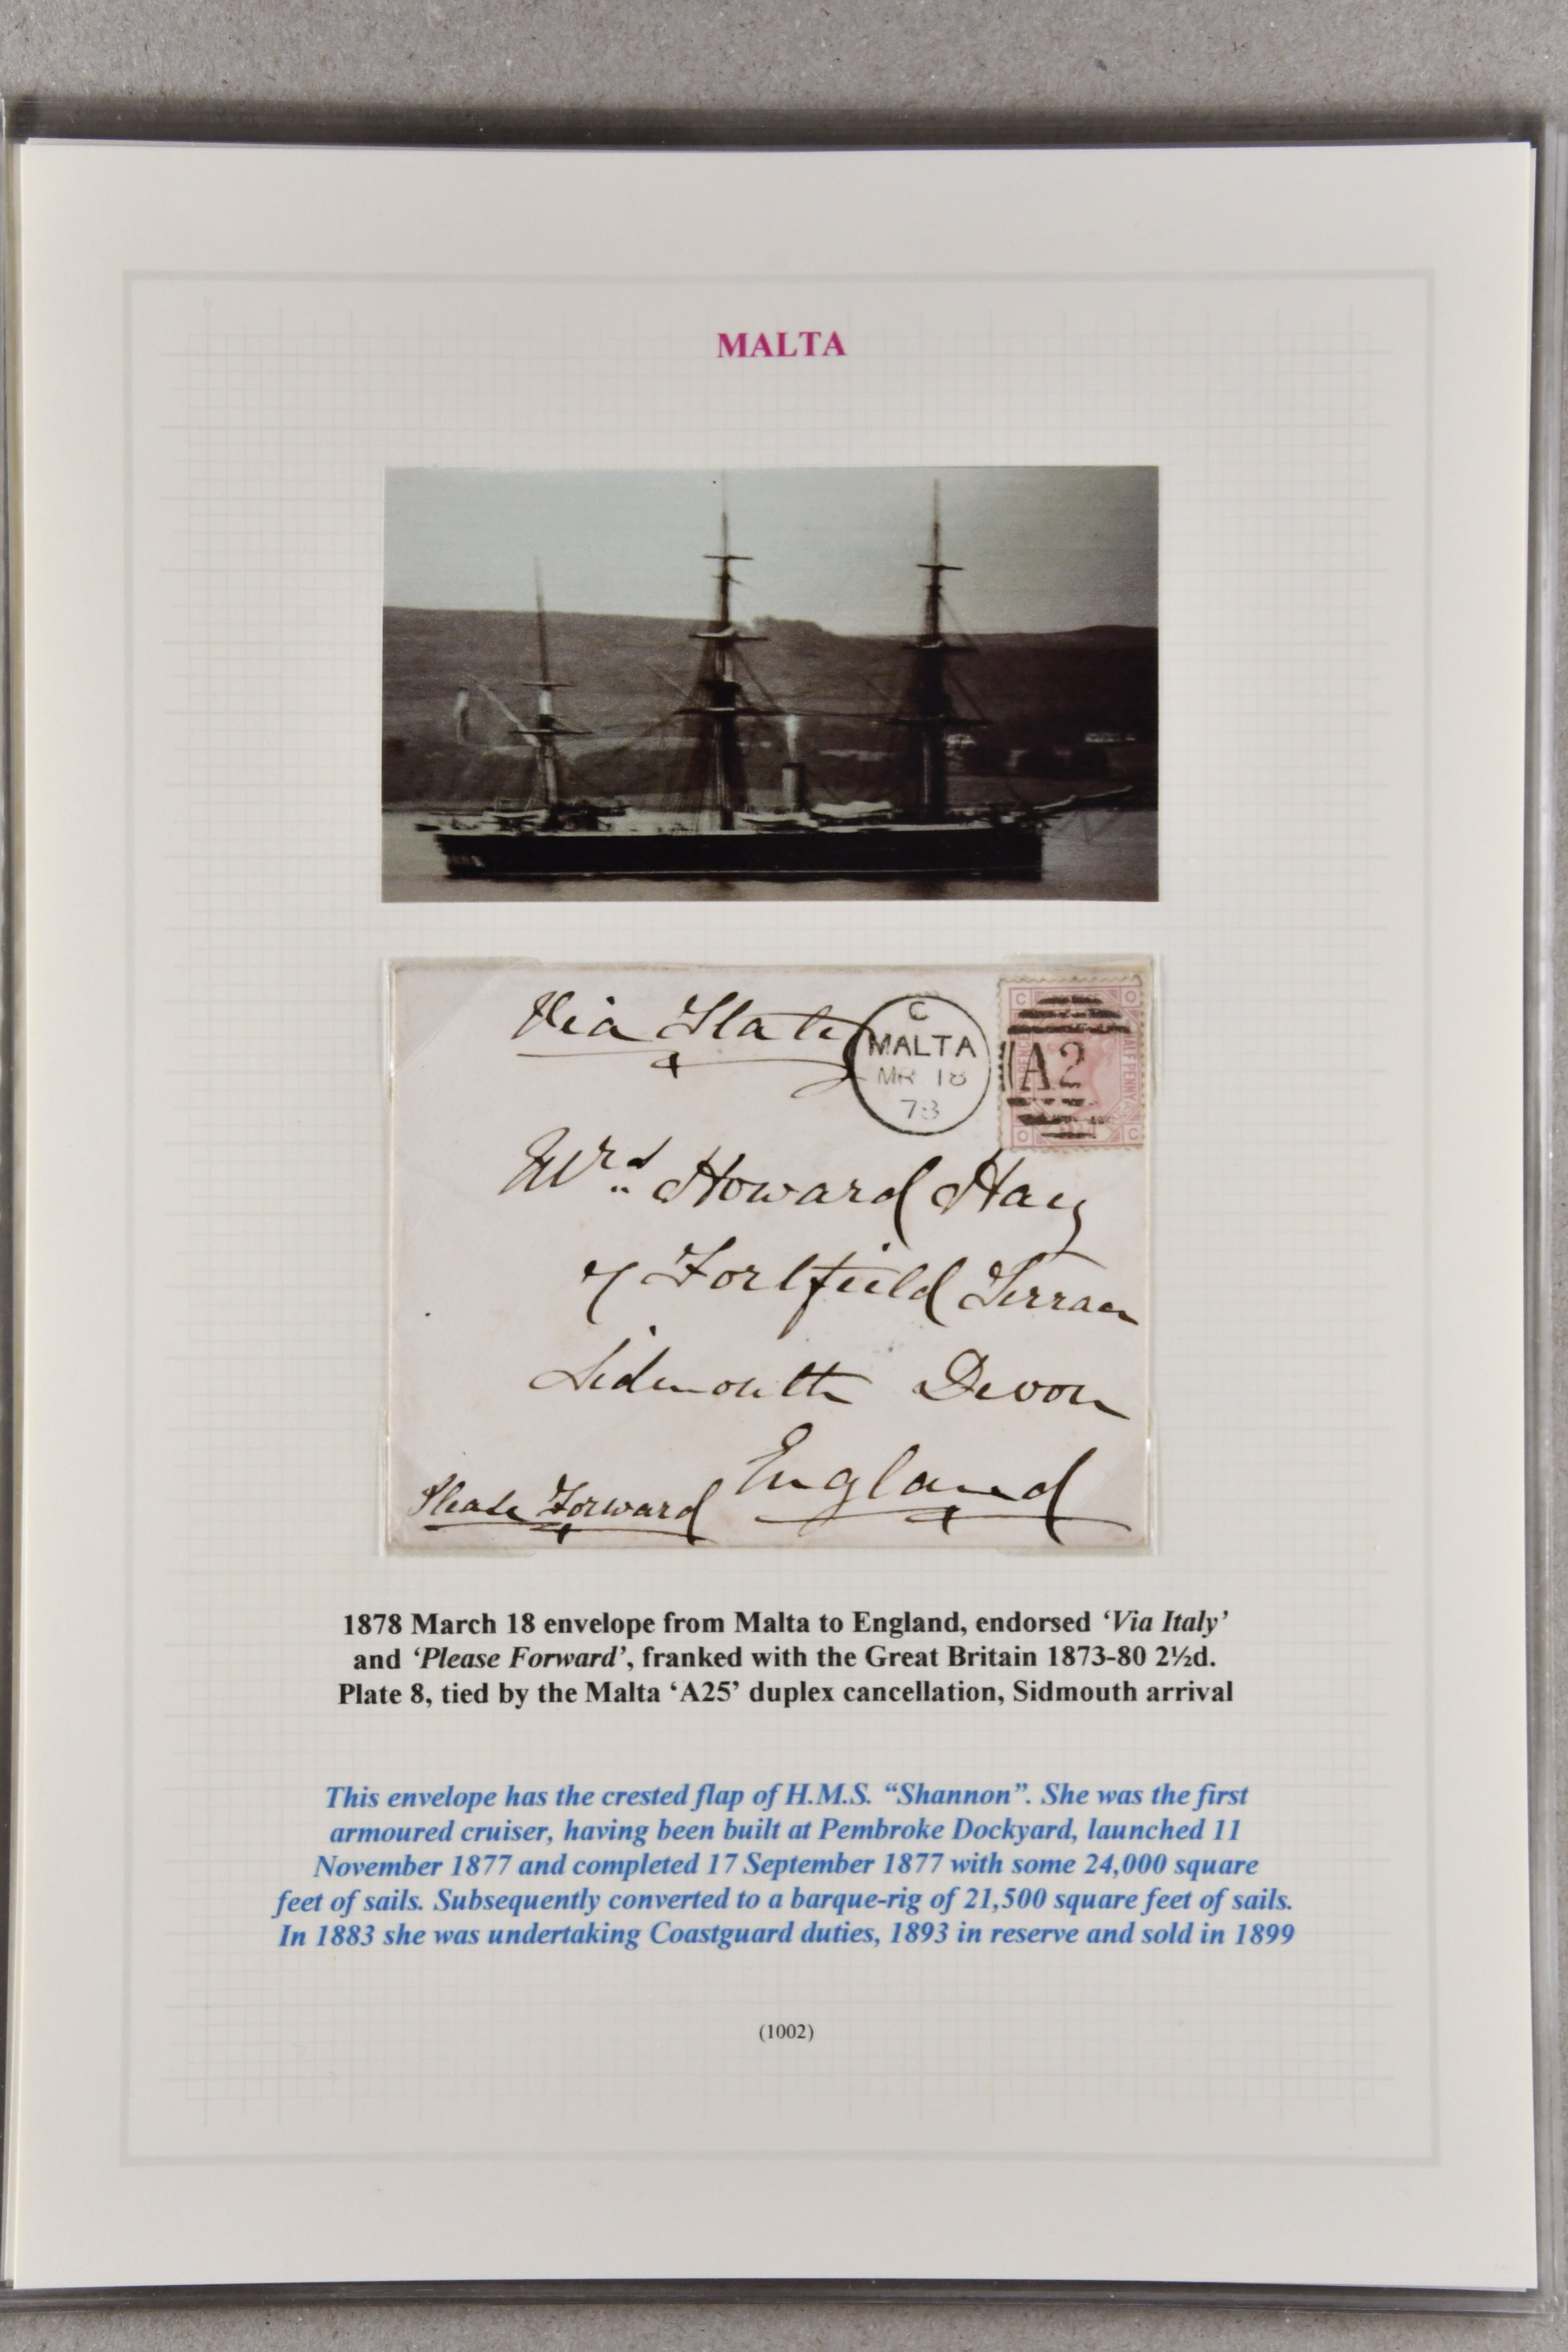 MALTA
Via Italy
C
MALTA
MR 18
78
C O
HALFPENNY
A2
O C
Mrs Howard Hay
7 Fortfield Terrace
Sidmouth Devon
England
Please Forward
1878 March 18 envelope from Malta to England, endorsed ‘Via Italy’
and ‘Please Forward’, franked with the Great Britain 1873-80 2½d.
Plate 8, tied by the Malta ‘A25’ duplex cancellation, Sidmouth arrival
This envelope has the crested flap of H.M.S. “Shannon”. She was the first
armoured cruiser, having been built at Pembroke Dockyard, launched 11
November 1877 and completed 17 September 1877 with some 24,000 square
feet of sails. Subsequently converted to a barque-rig of 21,500 square feet of sails.
In 1883 she was undertaking Coastguard duties, 1893 in reserve and sold in 1899
(1002)